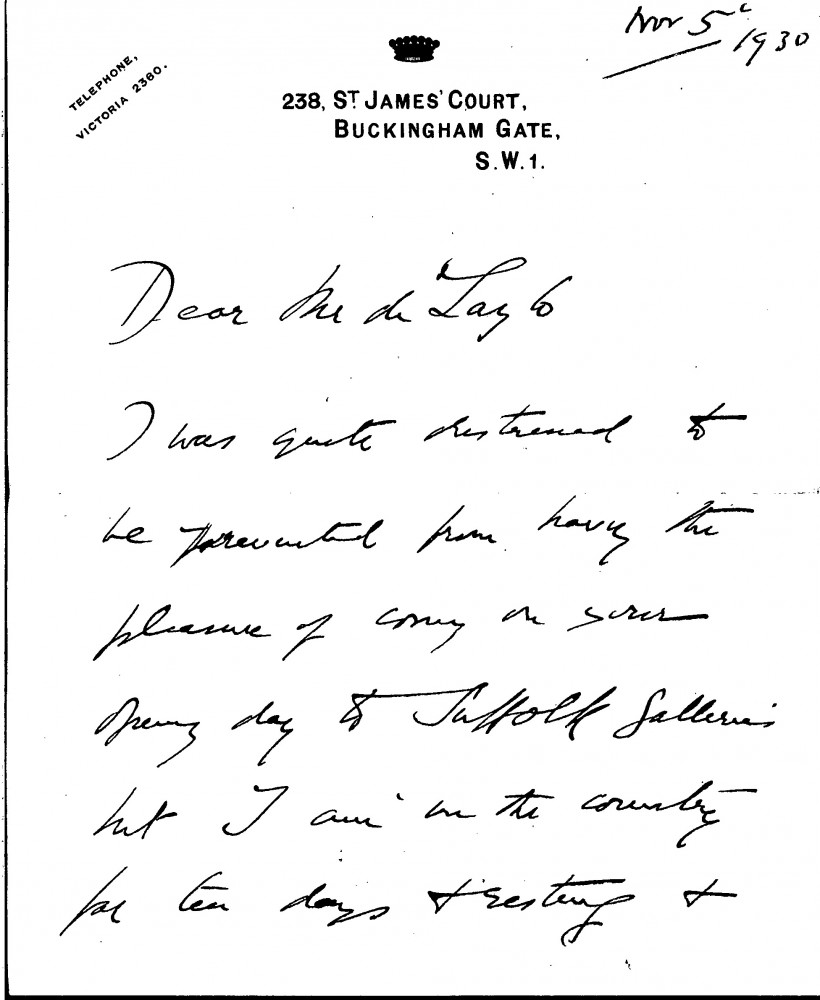 Nov 5th
1930
TELEPHONE,
VICTORIA 2360.
238, ST JAMES' COURT,
BUCKINGHAM GATE,
S.W.1.
Dear Mr de Laszlo
I was quite distressed to
be prevented from having the
pleasure of coming on your
opening day to Suffolk Galleries
but I am in the country
for ten days & resting &